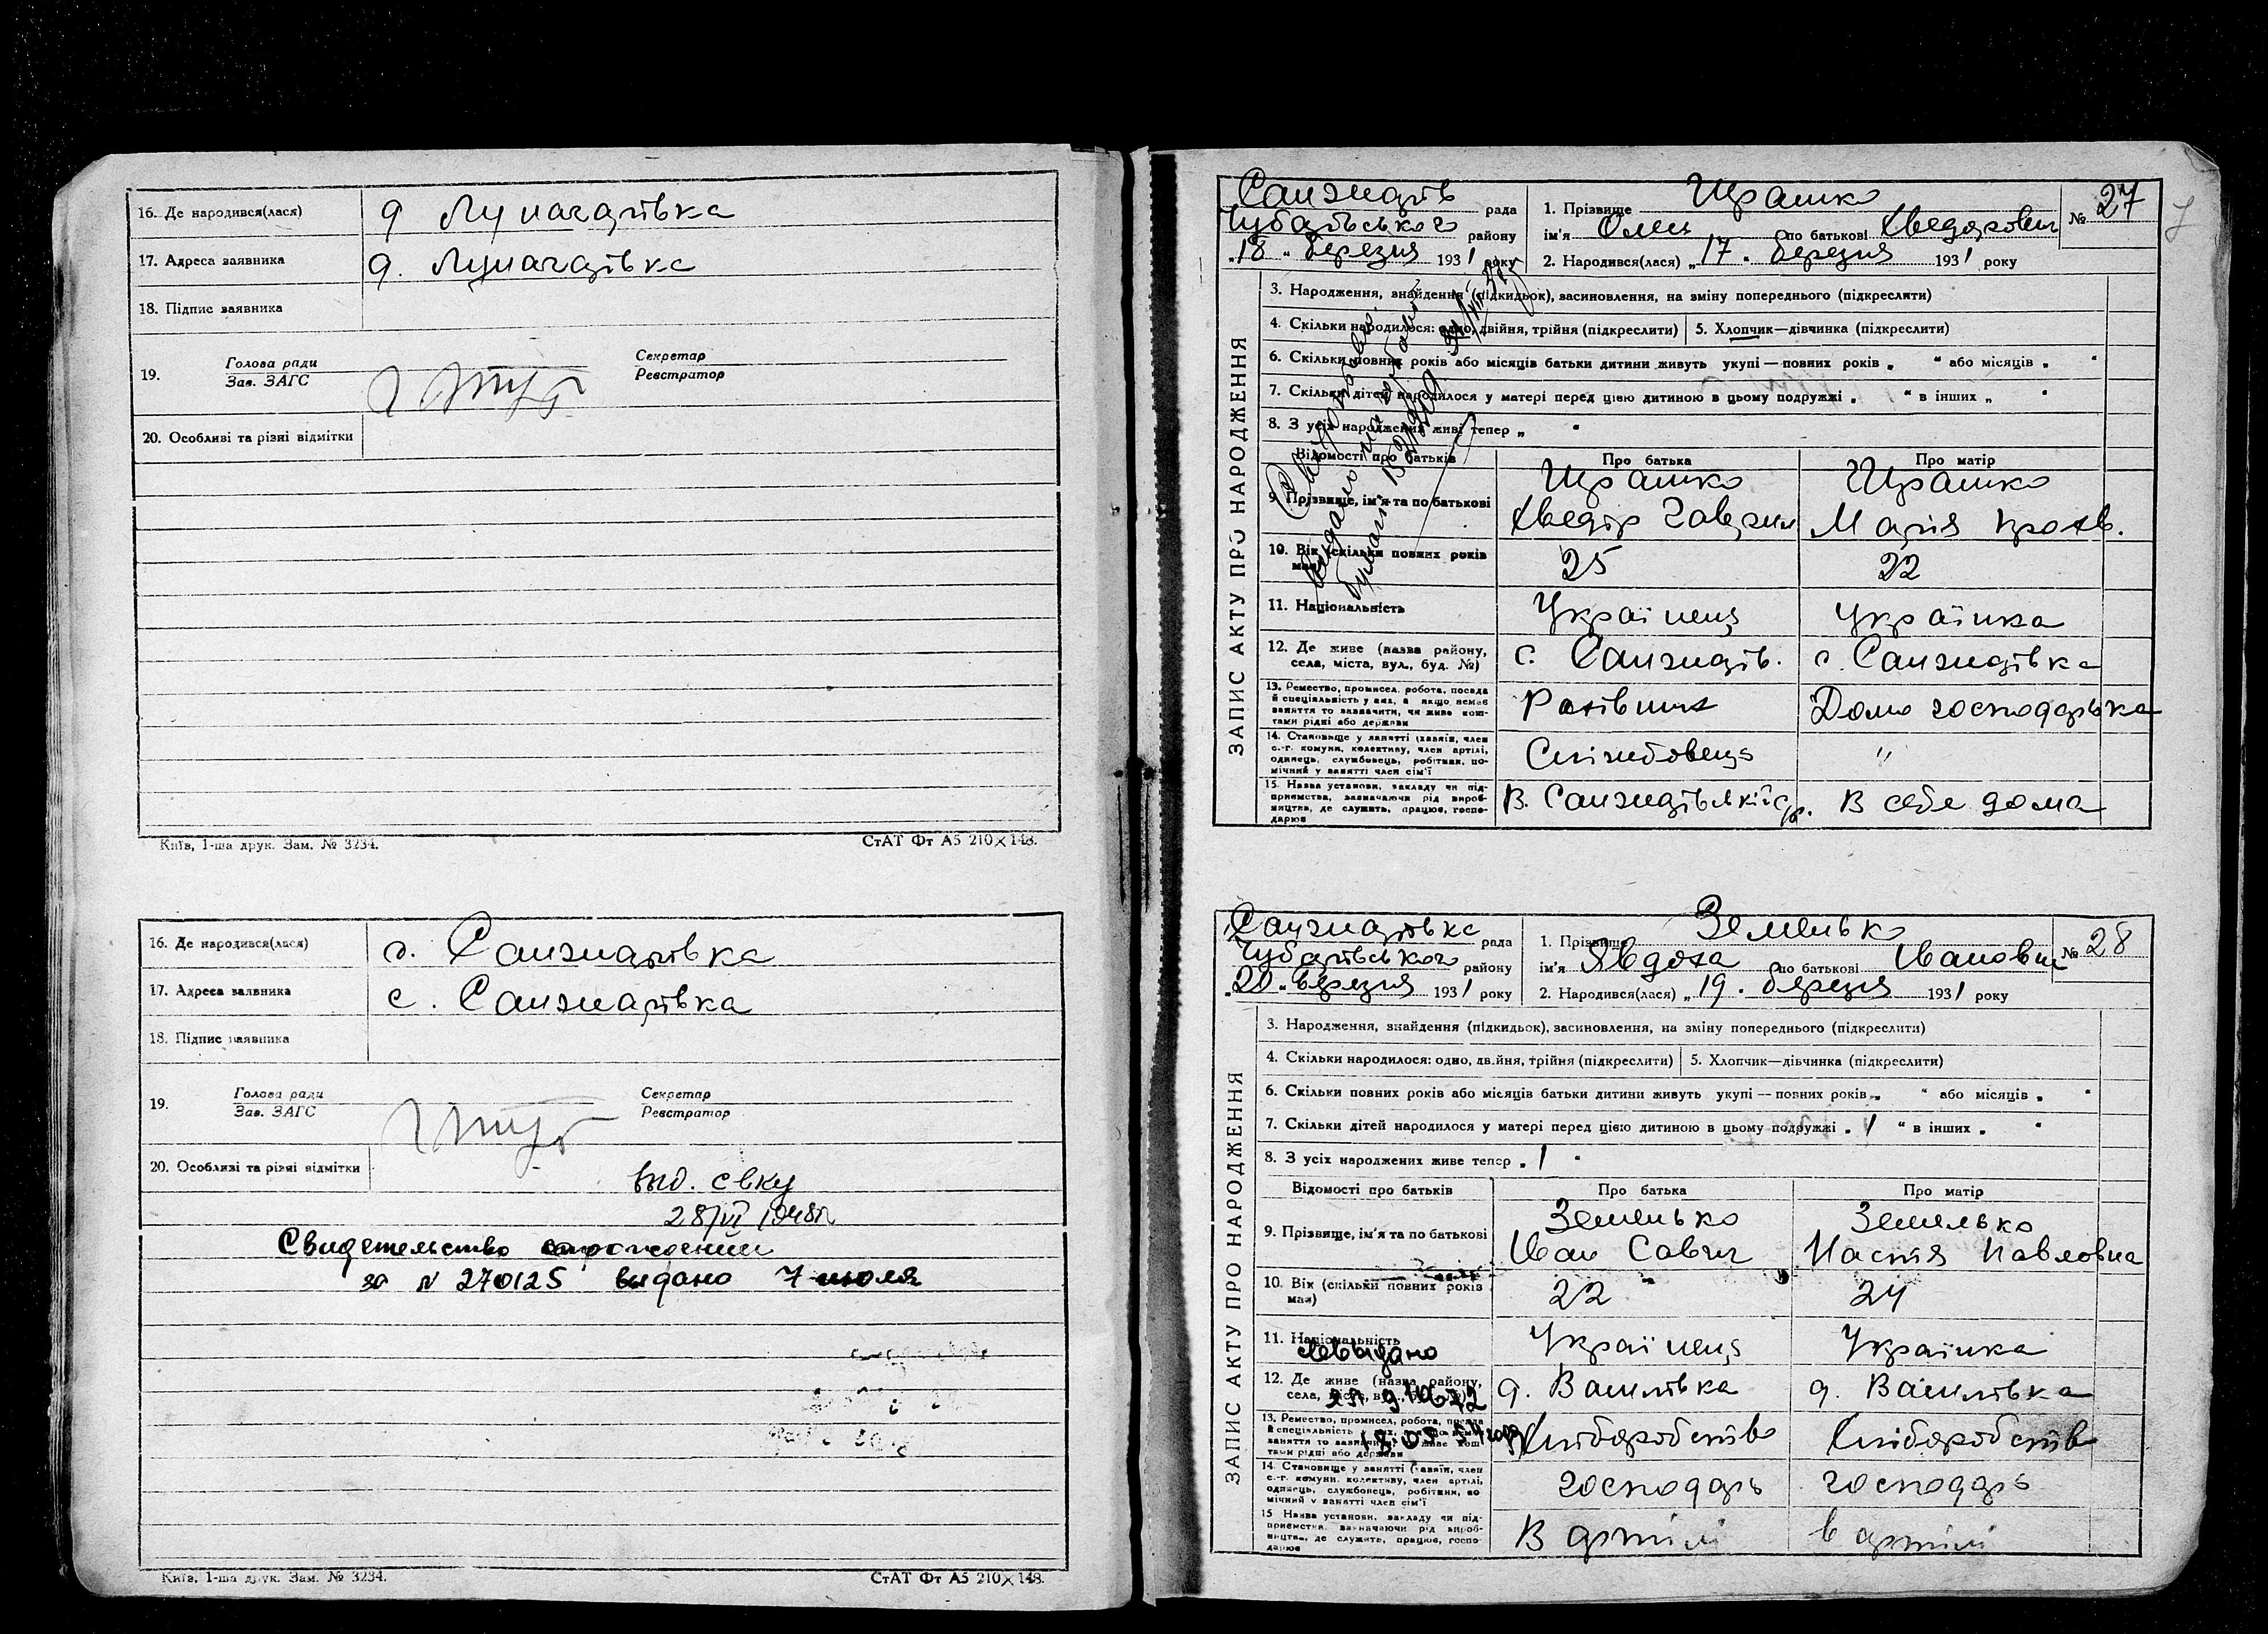 16. Де народився(лася) д Луначарівка
17. Адреса заявника д. Луначарівка
18. Підпис заявника
19. Голова ради
Зав. ЗАГС
Секретар
Реєстратор
20. Особливі та різні відмітки
Київ, 1-ша друк. Зам. № 3234.
СтАТ Фт А5 210×148.
16. Де народився(лася) с. Санжарівка
17. Адреса заявника с. Санжарівка
18. Підпис заявника
19. Голова ради
Зав. ЗАГС
Секретар
Реєстратор
20. Особливі та різні відмітки
вид. св-ку
28/VI 1948р
Свидетельство о рождении
за № 270125 выдано 7 июля
Київ, 1-ша друк. Зам. № 3234.
СтАТ Фт А5 210×148.
Санжарів рада
Чубарівського району
„18„ березня 1931 року
1. Прізвище Юрашко
ім'я Олекс по батькові Хведорович
2. Народився(лася) „17„ березня 1931 року
№ 27
7
ЗАПИС АКТУ ПРО НАРОДЖЕННЯ
3. Народження, знайдення (підкидьок), засиновлення, на зміну попереднього (підкреслити)
4. Скільки народилося: одно, двійня, трійня (підкреслити)
5. Хлопчик—дівчинка (підкреслити)
6. Скільки повних років або місяців батьки дитини живуть укупі—повних років „ “ або місяців „ “
7. Скільки дітей народилося у матері перед цією дитиною в цьому подружжі „ “ в інших „ “
8. З усіх народжених живі тепер „ “
Відомості про батьків
Про батька
Про матір
9. Прізвище, ім'я та по батькові
Юрашко
Хведір Гаврил
Юрашко
Марія
10. Вік (скільки повних років має)
25
22
11. Національність
Українець
Українка
12. Де живе (назва району, села, міста, вул., буд. №)
с. Санжарів.
с. Санжарівка
13. Ремество, промисел, робота, посада й спеціяльність у них, а якщо немає заняття то зазначити, чи живе коштами рідні або держави
Рахівник
Домо господарька
14. Становище у занятті (хазяїн, член с.-г. комуни, колективу, член артілі, одинець, службовець, робітник, помічний у занятті член сім'ї
Службовець
"
15. Назва установи, закладу чи підприємства, зазначаючи рід виробництва, де служить, працює, господарює
В. Санжарівській с/р.
В себе дома
Санжарівка рада
Чубарівського району
„20„ березня 1931 року
1. Прізвище Земелько
ім'я Явдоха по батькові Івановн
2. Народився(лася) „19„ березня 1931 року
№ 28
ЗАПИС АКТУ ПРО НАРОДЖЕННЯ
3. Народження, знайдення (підкидьок), засиновлення, на зміну попереднього (підкреслити)
4. Скільки народилося: одно, двійня, трійня (підкреслити)
5. Хлопчик—дівчинка (підкреслити)
6. Скільки повних років або місяців батьки дитини живуть укупі—повних років „ “ або місяців „ “
7. Скільки дітей народилося у матері перед цією дитиною в цьому подружжі „1 “ в інших „ “
8. З усіх народжених живе тепер „1 “
Відомості про батьків
Про батька
Про матір
9. Прізвище, ім'я та по батькові
Земелько
Іван Савич
Земелько
Настя Павловна
10. Вік (скільки повних років має)
22
24
11. Національність
Українець
Українка
12. Де живе (назва району, села, міста, вул., буд. №)
д. Василівка
д. Василівка
13. Ремество, промисел, робота, посада й спеціяльність у них, а якщо немає заняття то зазначити, чи живе коштами рідні або держави
Хліборобство
Хліборобств
14. Становище у занятті (хазяїн, член с.-г. комуни, колективу, член артілі, одинець, службовець, робітник, помічний у занятті член сім'ї
господарь
господарь
15 Назва установи, закладу чи підприємства, зазначаючи рід виробництва, де служить, працює, господарює
В артілі
в артілі